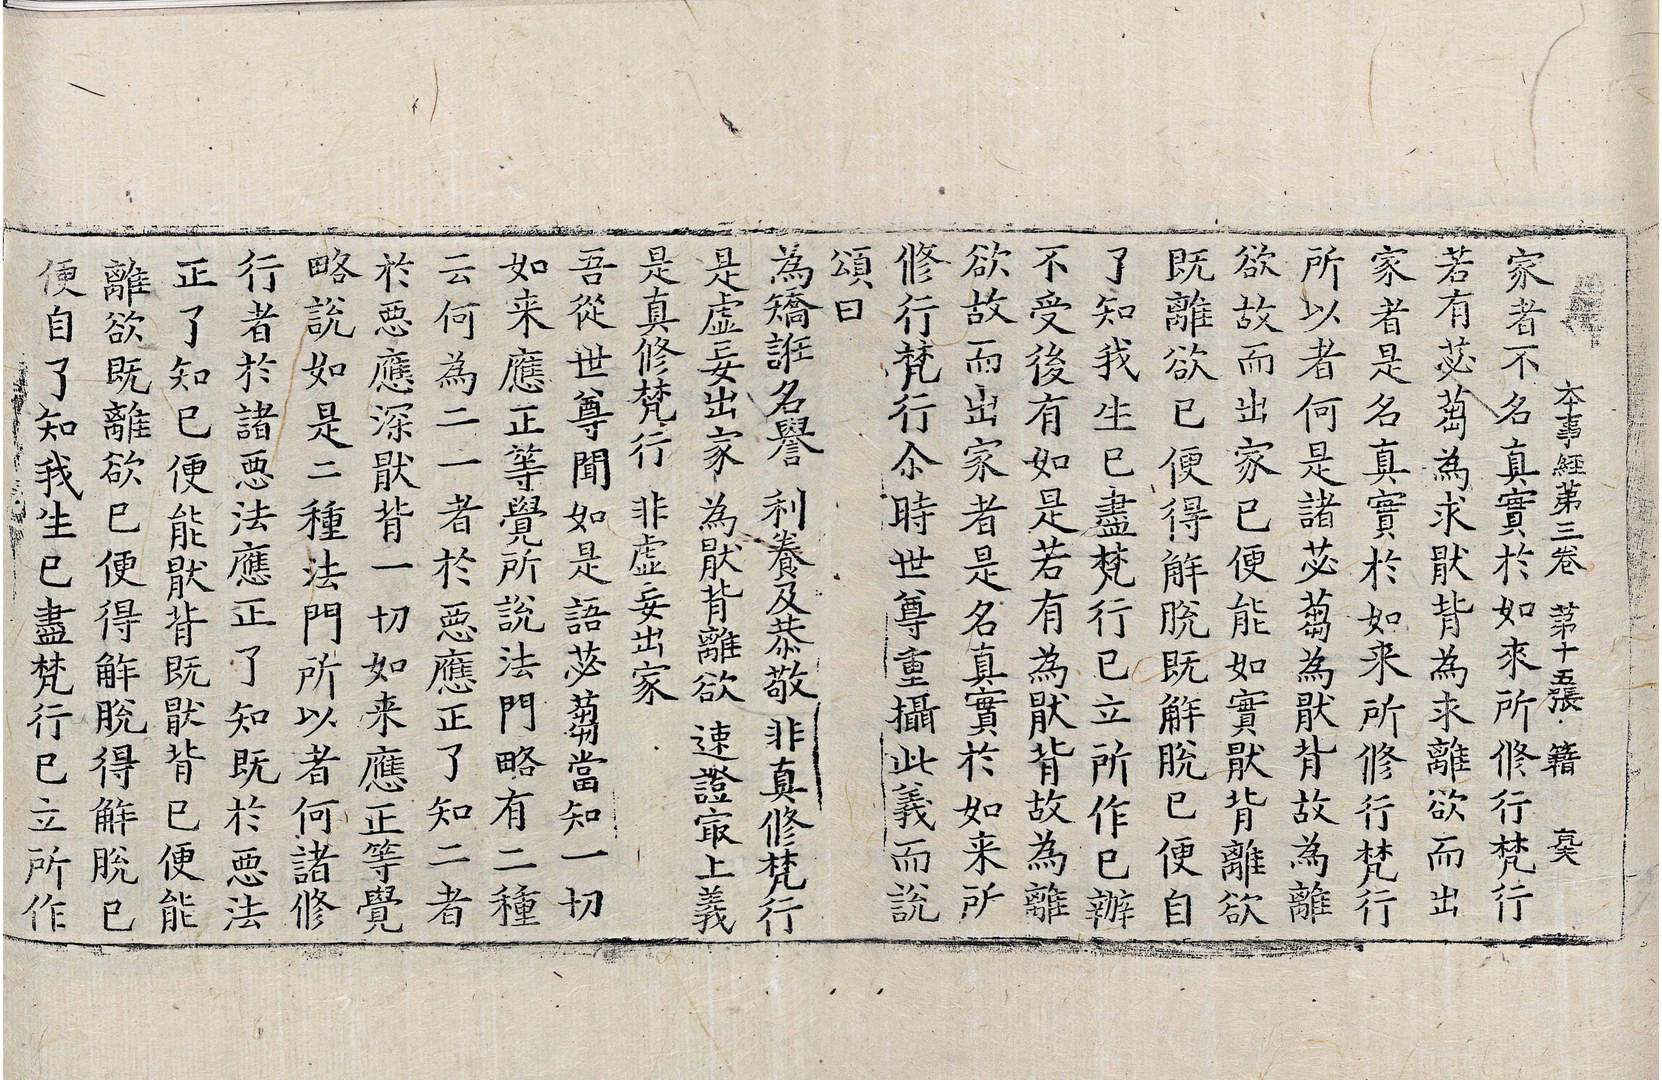 本事經第三卷 第十五張 籍
家者不名真實於如來所修行梵行
若有苾蒭為求猒背為求離欲而出
家者是名真實於如来所修行梵行
所以者何是諸苾蒭為猒背故為離
欲故而出家已便能如實猒背離欲
既離欲已便得解脫既解脫已便自
了知我生已盡梵行已立所作已辦
不受後有如是若有為猒背故為離
欲故而出家者是名真實於如来所
修行梵行尒時世尊重攝此義而說
頌曰
為矯誑名譽 利養及恭敬 非真修梵行
是虛妄出家 為猒背離欲 速證冣上義
是真修梵行 非虛妄出家
吾從世尊聞如是語苾蒭當知一切
如来應正等覺所說法門略有二種
云何為二一者於惡應正了知二者
於惡應深猒背一切如来應正等覺
略說如是二種法門所以者何諸修
行者於諸惡法應正了知既於惡法
正了知已便能猒背既猒背已便能
離欲既離欲已便得解脫得解脫已
便自了知我生已盡梵行已立所作